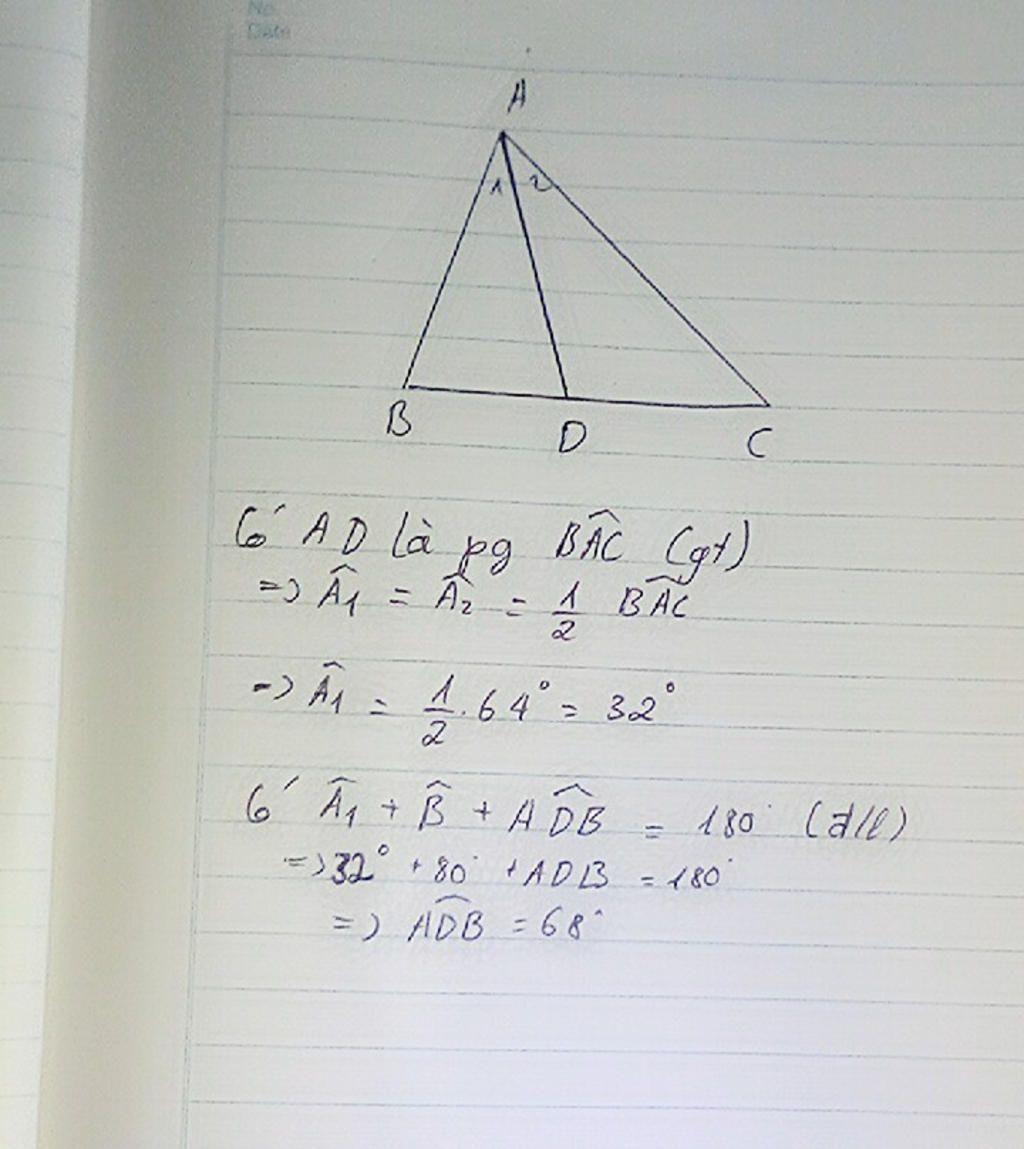 No.
Date
A
1 2
B D C
Có AD là pg BÂC (gt)
=> Â1 = Â2 = 1/2 BÂC
=> Â1 = 1/2 . 64° = 32°
Có Â1 + B̂ + AD̂B = 180° (đ/l)
=> 32° + 80° + ADB = 180°
=> AD̂B = 68°